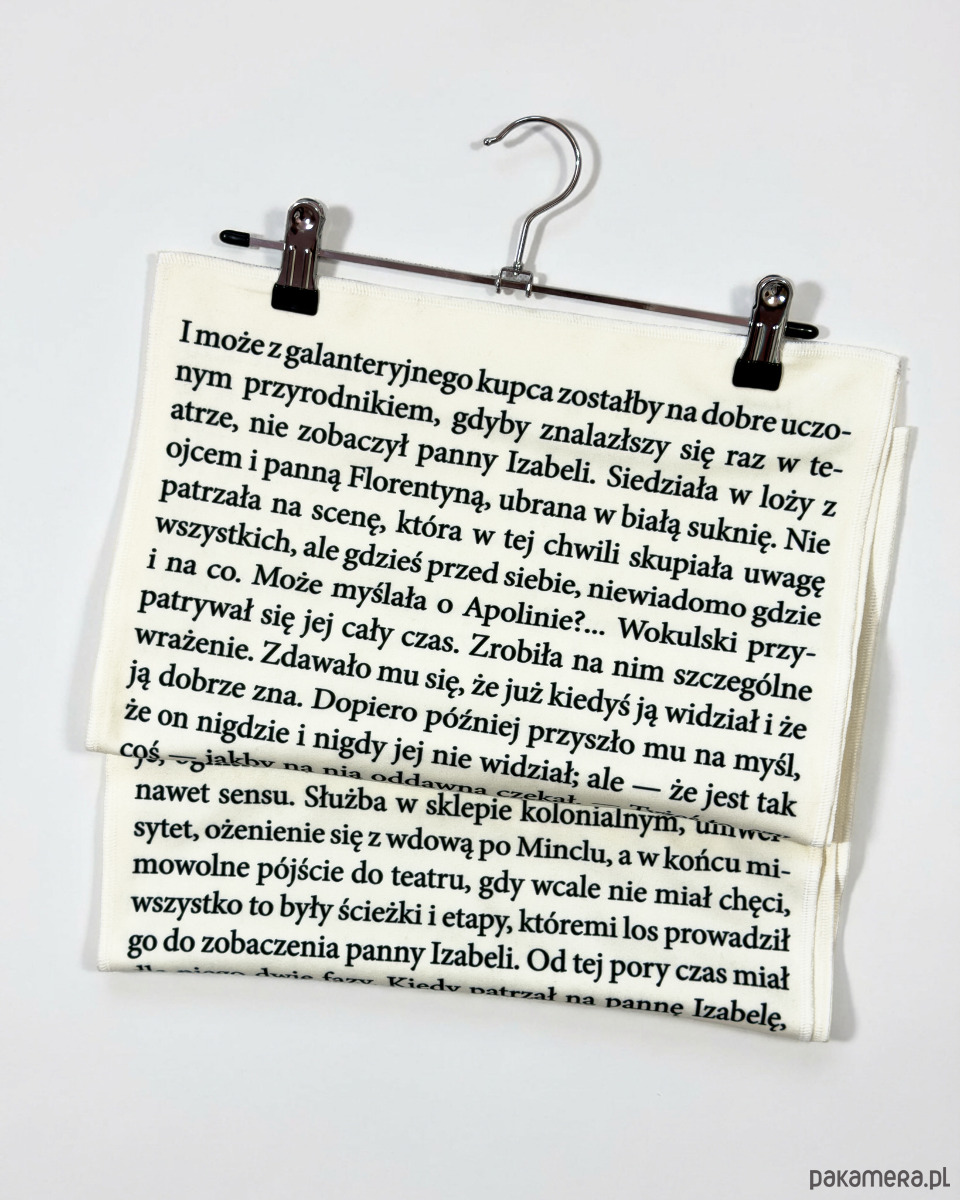 I może z galanteryjnego kupca zostałby na dobre uczo-
nym przyrodnikiem, gdyby znalazłszy się raz w te-
atrze, nie zobaczył panny Izabeli. Siedziała w loży z
ojcem i panną Florentyną, ubrana w białą suknię. Nie
patrzała na scenę, która w tej chwili skupiała uwagę
wszystkich, ale gdzieś przed siebie, niewiadomo gdzie
i na co. Może myślała o Apolinie?... Wokulski przy-
patrywał się jej cały czas. Zrobiła na nim szczególne
wrażenie. Zdawało mu się, że już kiedyś ją widział i że
ją dobrze zna. Dopiero później przyszło mu na myśl,
że on nigdzie i nigdy jej nie widział; ale — że jest tak
coś, — jakby na nią oddawna czekał. —
nawet sensu. Służba w sklepie kolonialnym, uniwer-
sytet, ożenienie się z wdową po Minclu, a w końcu mi-
mowolne pójście do teatru, gdy wcale nie miał chęci,
wszystko to były ścieżki i etapy, któremi los prowadził
go do zobaczenia panny Izabeli. Od tej pory czas miał
dla niego dwie fazy. Kiedy patrzał na pannę Izabelę,
pakamera.pl